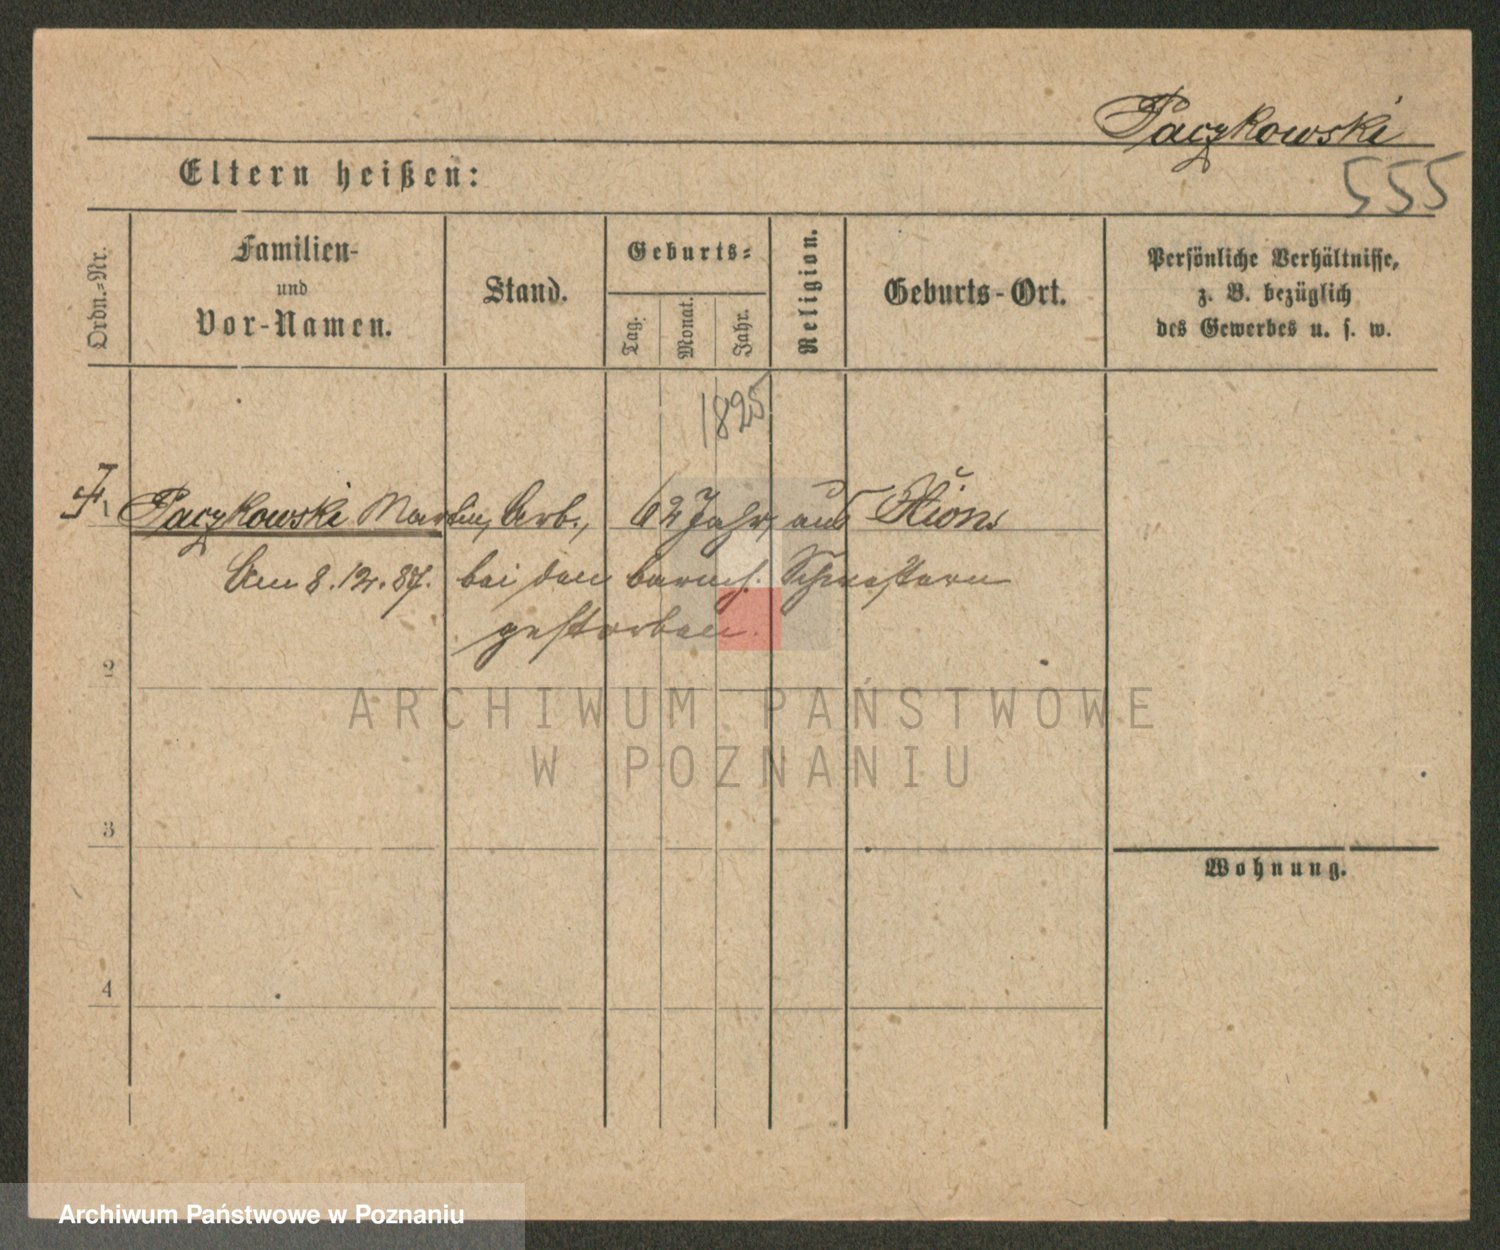 Paczkowski
555
Eltern heißen:
Ordn.=Nr.
Familien-
und
Vor-Namen.
Stand.
Geburts=
Tag.
Monat.
Jahr.
Religion.
Geburts-Ort.
Persönliche Verhältnisse,
z. B. bezüglich
des Gewerbes u. s. w.
1825
1 Paczkowski Martin, Arb., 62 Jahr, aus Xions
Am 8.12.87. bei den barmh. Schwestern
gestorben.
2
ARCHIWUM PAŃSTWOWE
W POZNANIU
3
Wohnung.
4
Archiwum Państwowe w Poznaniu